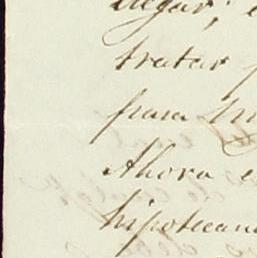 llegar; e
tratar
para
Ahora e
hipotecan